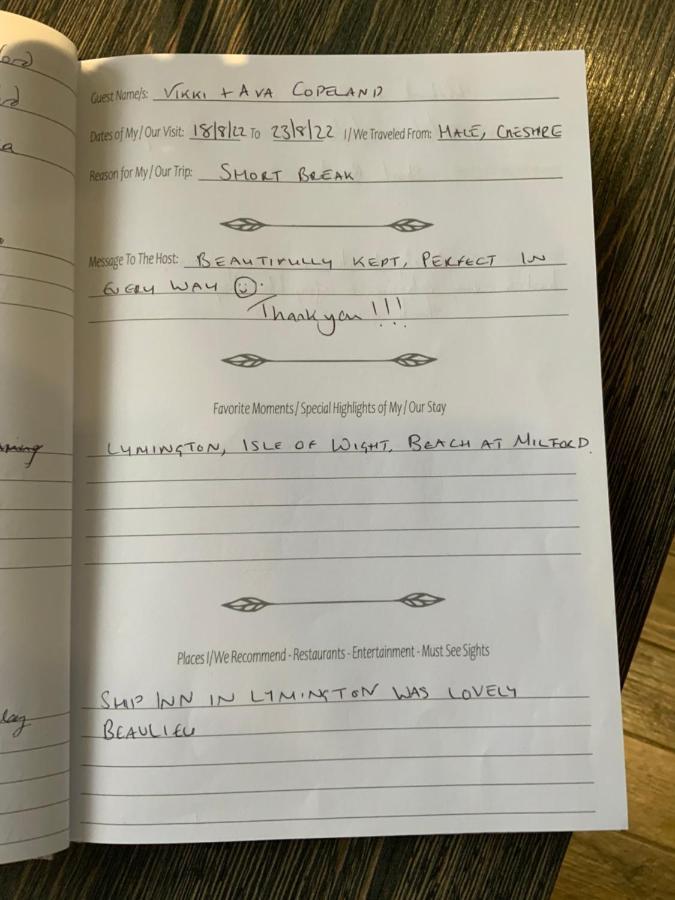 Guest Name/s: VIKKI + AVA COPELAND
Dates of My / Our Visit: 18/8/22 To 23/8/22 I / We Traveled From: HALE, CHESHIRE
Reason for My / Our Trip: SHORT BREAK
Message To The Host: BEAUTIFULLY KEPT, PERFECT IN
EVERY WAY ☺.
Thank you !!!
Favorite Moments / Special Highlights of My / Our Stay
LYMINGTON, ISLE OF WIGHT, BEACH AT MILFORD.
Places I/We Recommend - Restaurants - Entertainment - Must See Sights
SHIP INN IN LYMINGTON WAS LOVELY
BEAULIEU